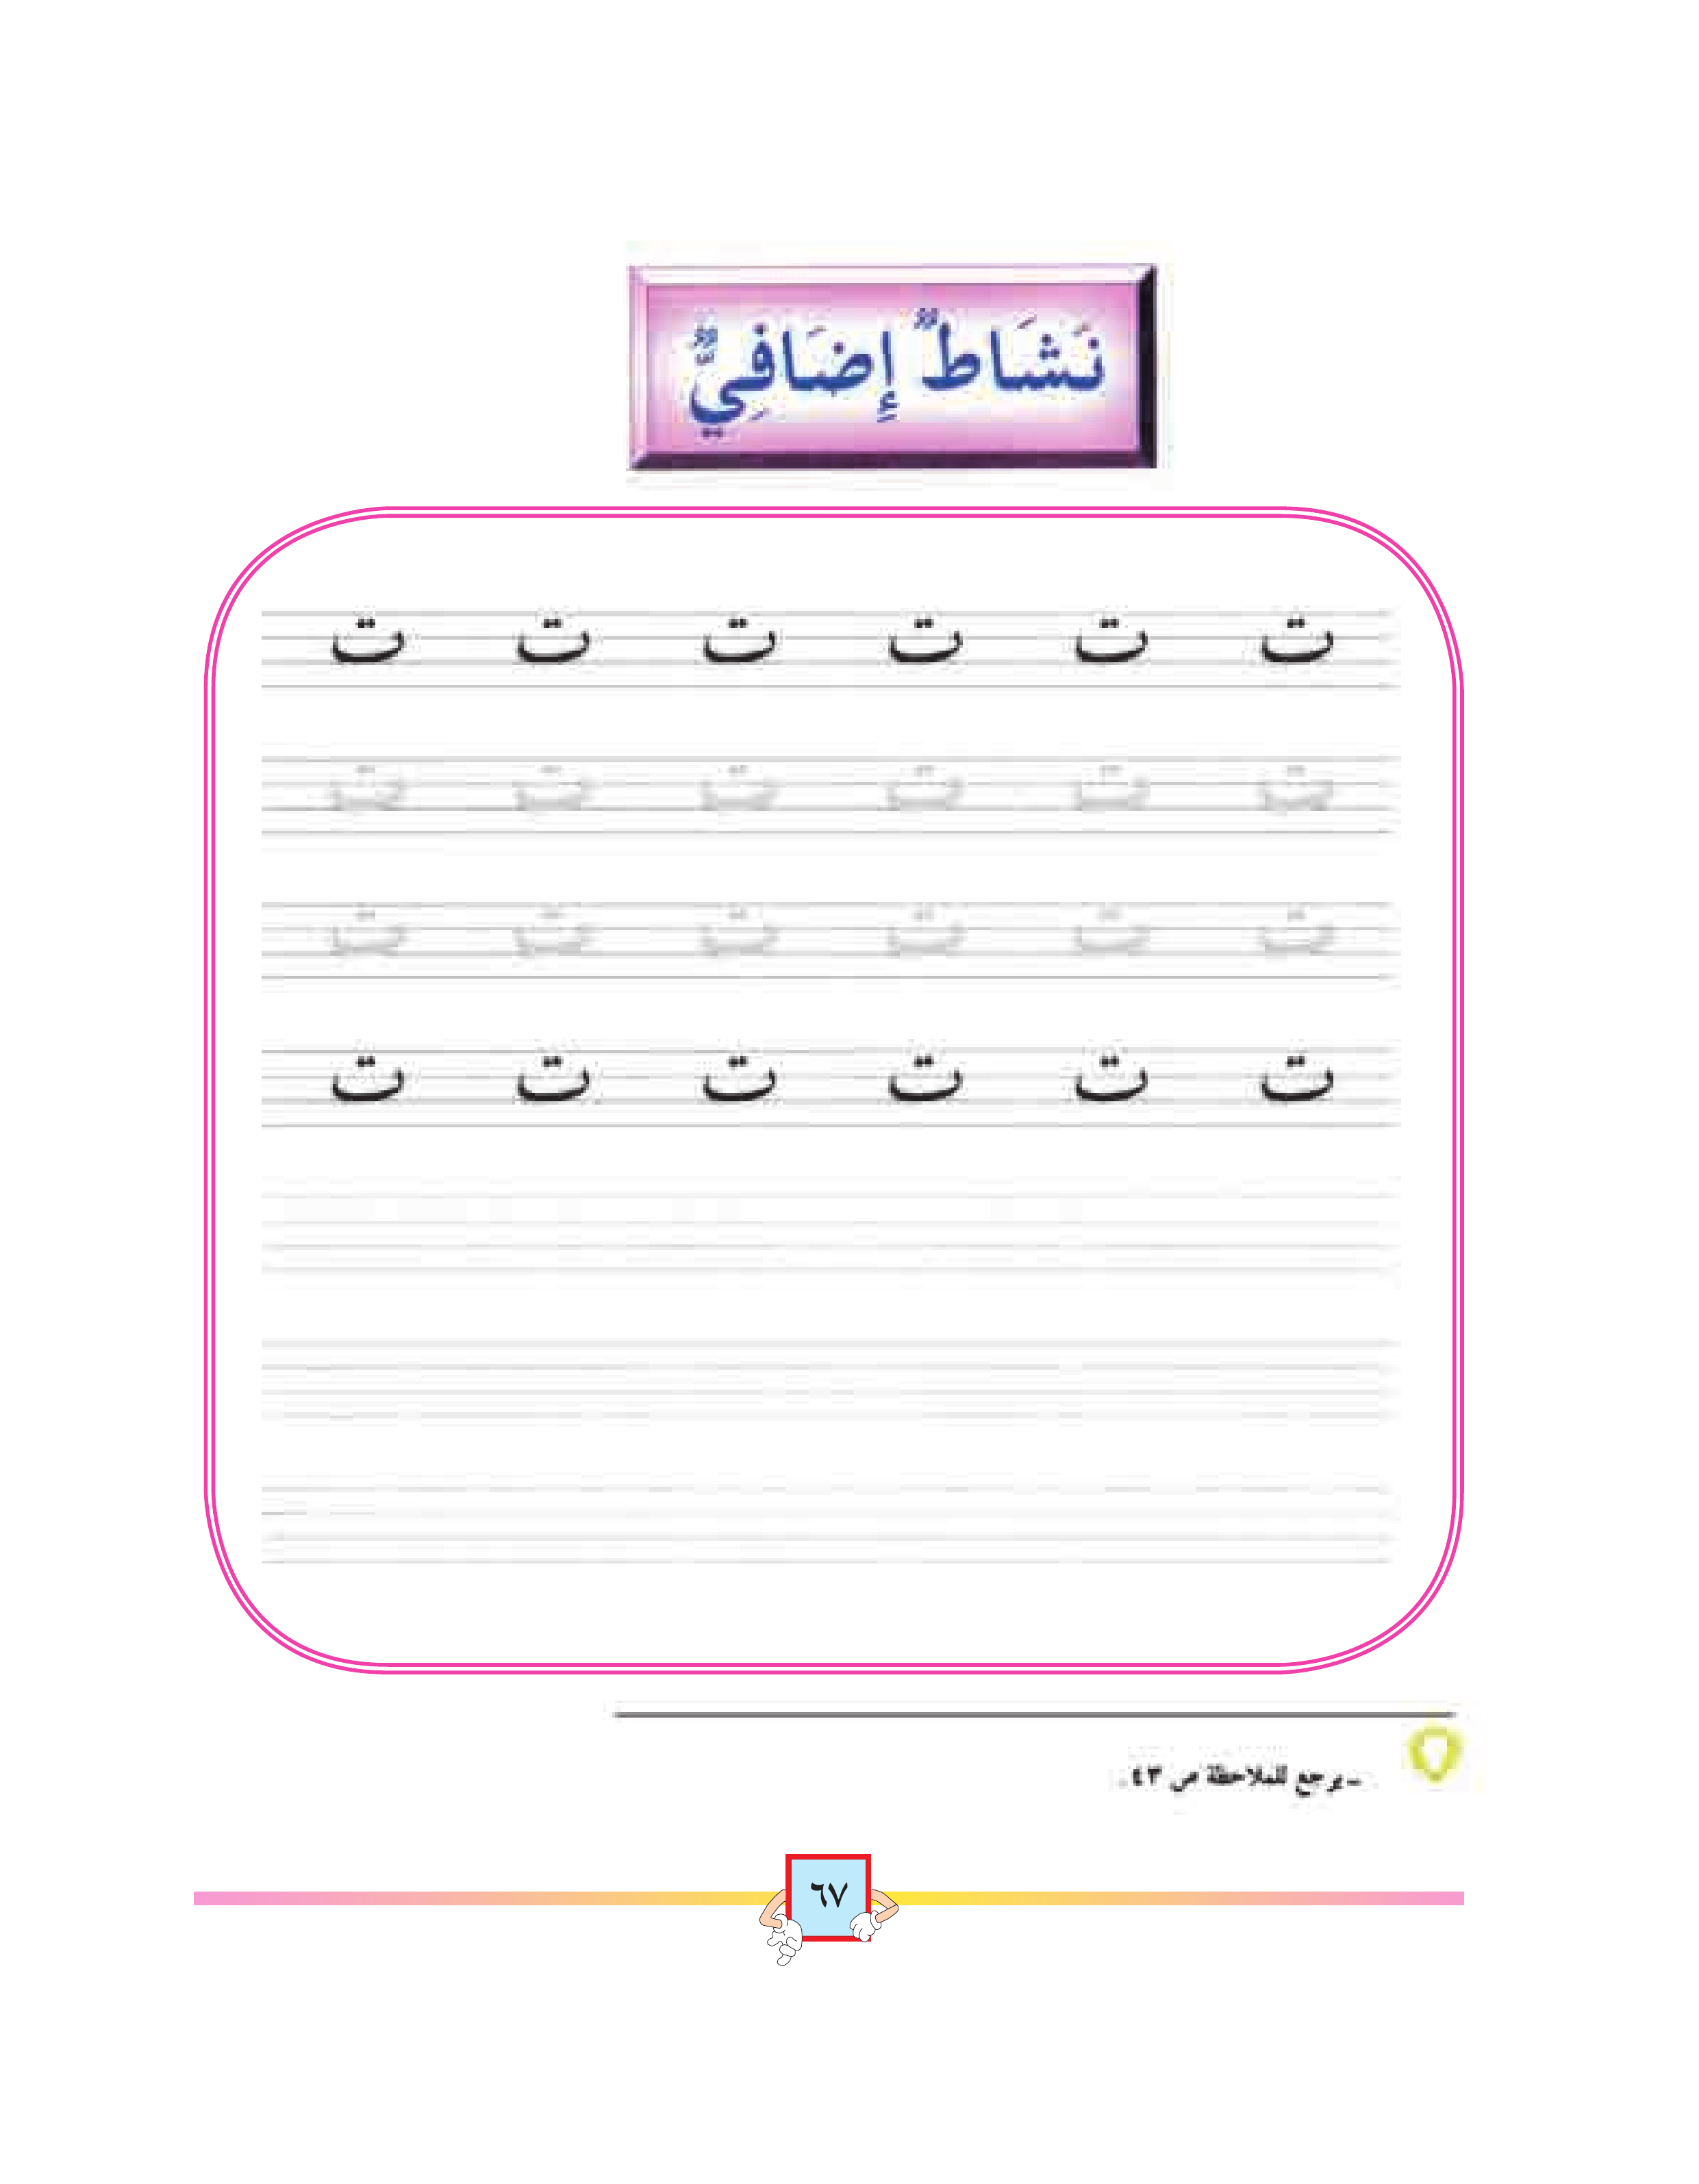 نَشَاطٌ إِضَافِيٌّ
ت ت ت ت ت ت
ت ت ت ت ت ت
ت ت ت ت ت ت
ت ت ت ت ت ت
ـ يرجع للملاحظة ص ٤٣
٦٧